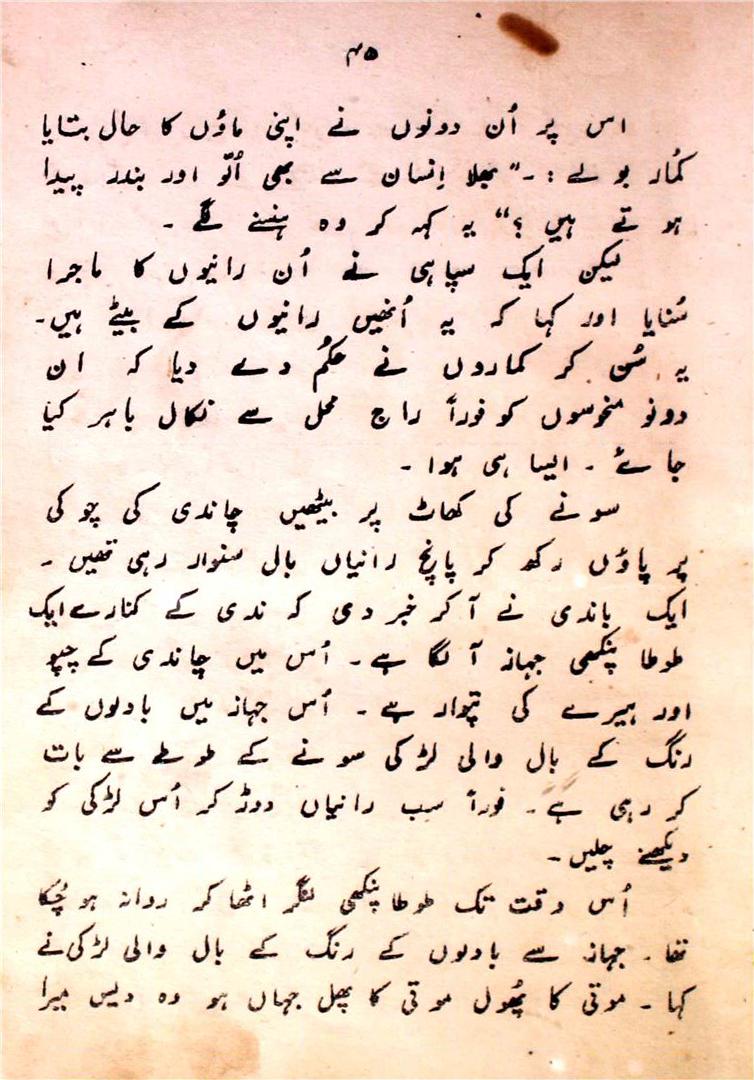 ۴۵
اس پر اُن دونوں نے اپنی ماؤں کا حال بتایا
کُمار بولے :۔ ”بھلا اِنسان سے بھی اُلّو اور بندر پیدا
ہوتے ہیں ؟“ یہ کہہ کر وہ ہنسنے لگے ۔
لیکن ایک سپاہی نے اُن رانیوں کا ماجرا
سُنایا اور کہا کہ یہ اُنھیں رانیوں کے بیٹے ہیں۔
یہ سُن کر کماروں نے حکُم دے دیا کہ ان
دونو منحوسوں کو فوراً راج محل سے نکال باہر کیا
جائے ۔ ایسا ہی ہوا ۔
سونے کی کھاٹ پر بیٹھیں چاندی کی چوکی
پر پاؤں رکھ کر پانچ رانیاں بال سنوار رہی تھیں ۔
ایک باندی نے آ کر خبر دی کہ ندی کے کنارے ایک
طوطا پنکھی جہاز آ لگا ہے ۔ اُس میں چاندی کے چپو
اور ہیرے کی تپوار ہے ۔ اُس جہاز میں بادلوں کے
رنگ کے بال والی لڑکی سونے کے طوطے سے بات
کر رہی ہے ۔ فوراً سب رانیاں دوڑ کر اُس لڑکی کو
دیکھنے چلیں ۔
اُس وقت تک طوطا پنکھی لنگر اٹھا کر روانہ ہو چُکا
تھا ۔ جہاز سے بادلوں کے رنگ کے بال والی لڑکی نے
کہا ۔ موتی کا پھُول موتی کا پھل جہاں ہو وہ دیس میرا